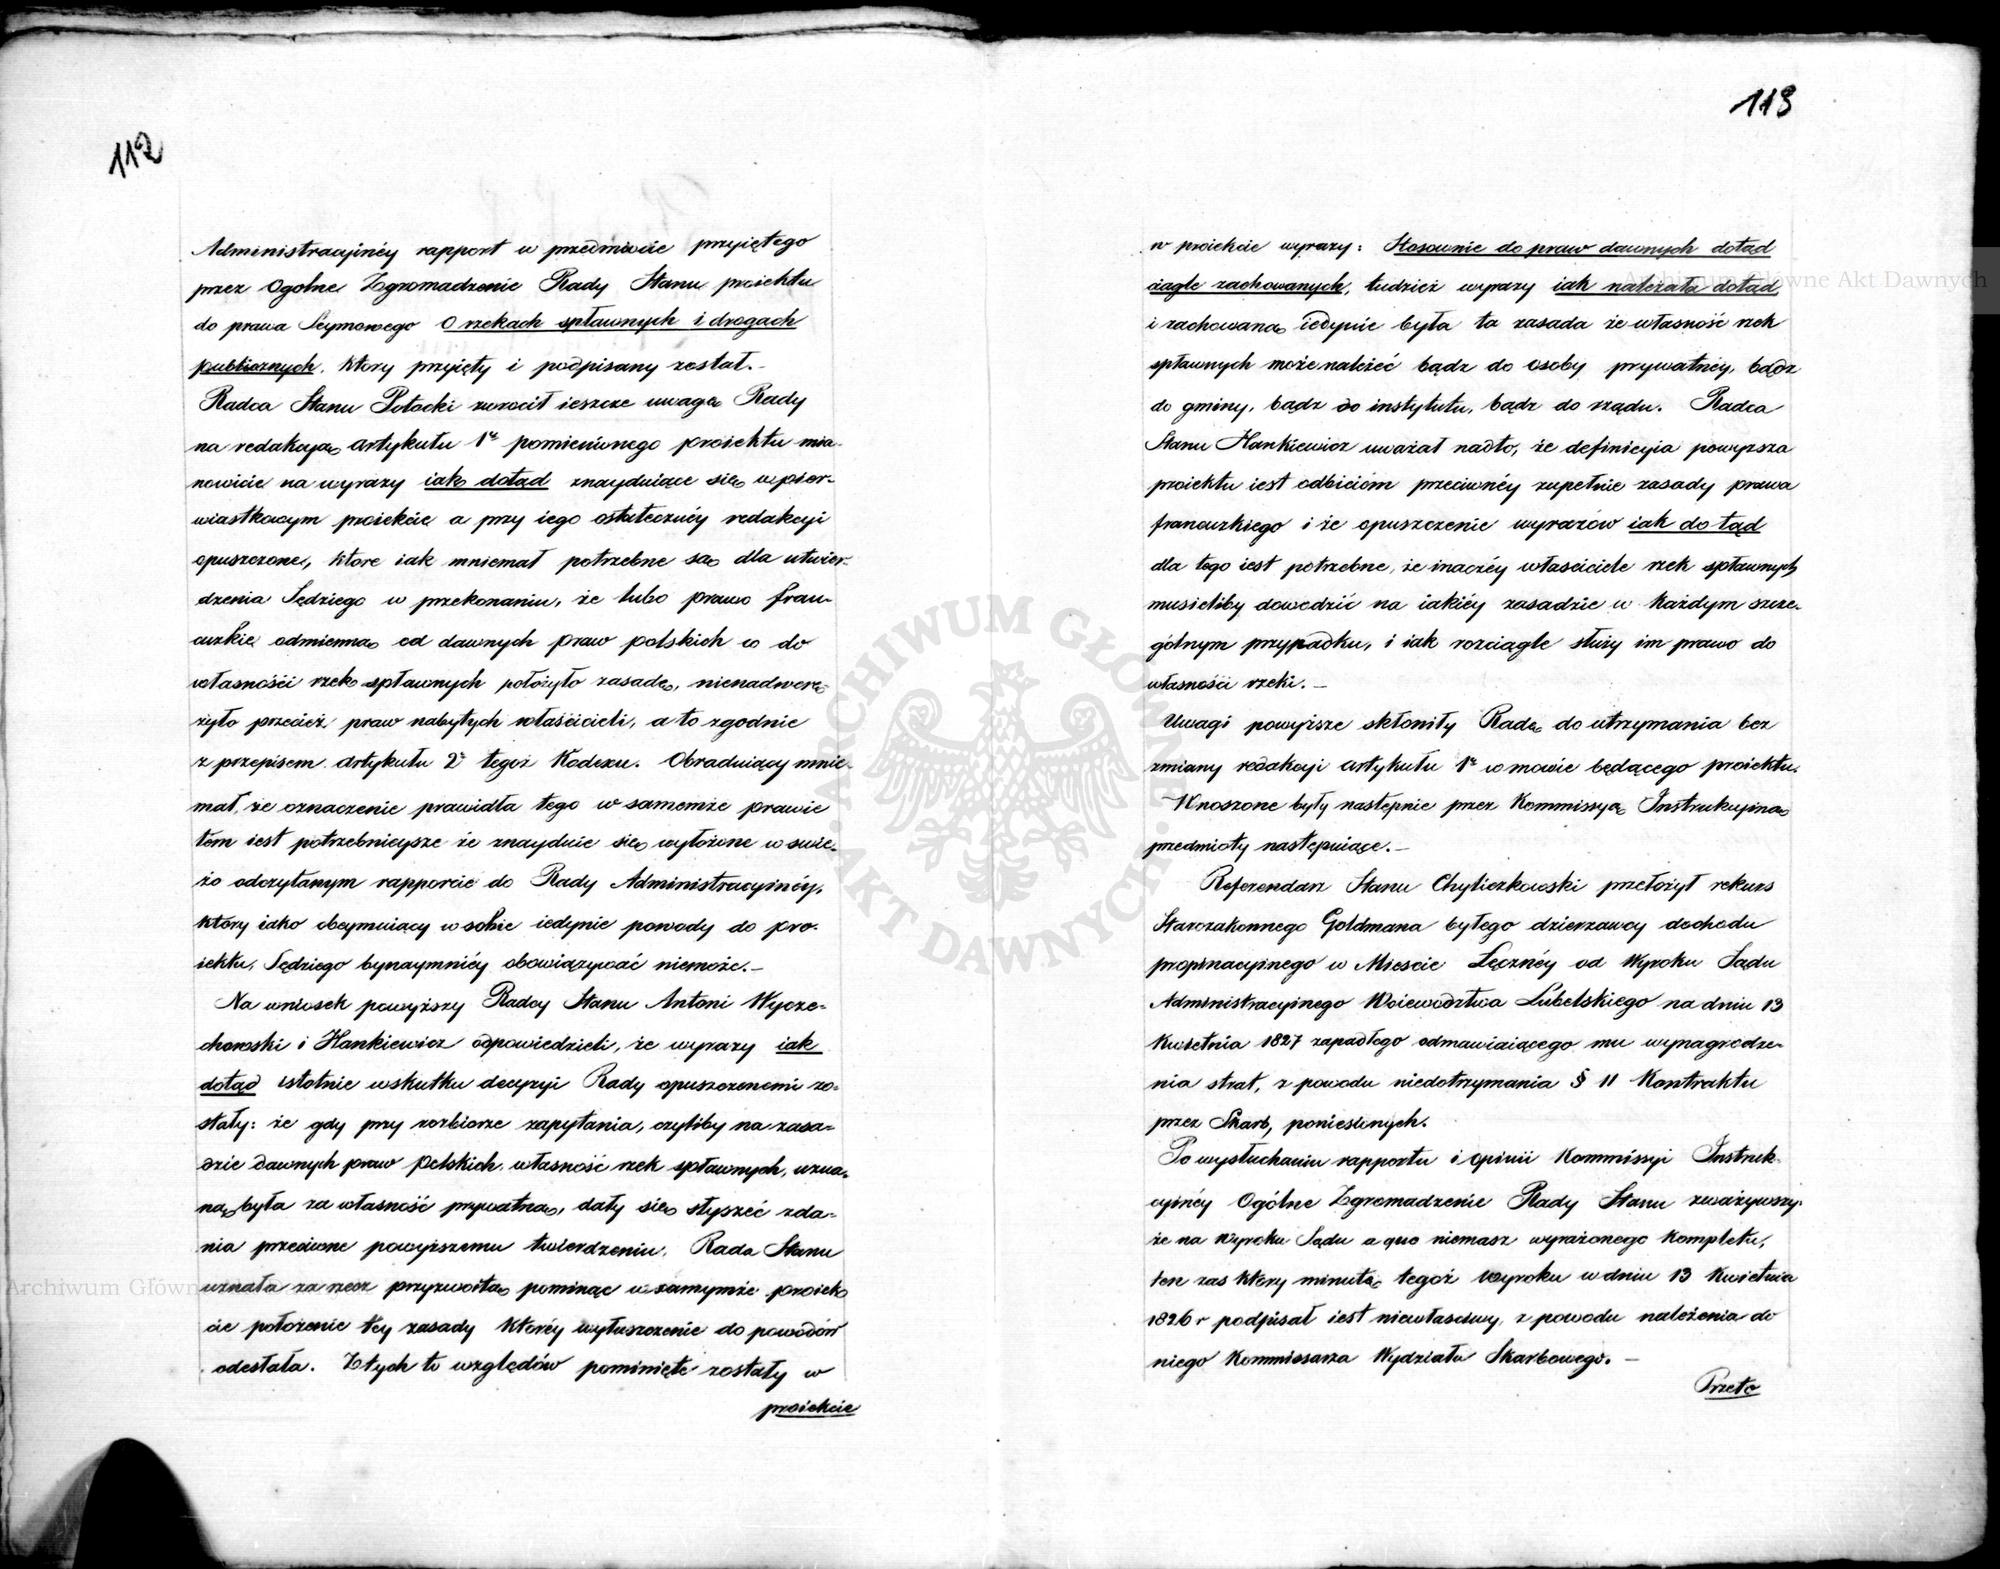 112
Administracyinéy rapport w przedmiocie przyiętego
przez Ogolne Zgromadzenie Rady Stanu proiektu
do prawa Seymowego O rzekach spławnych i drogach
publicznych, ktory przyięty i podpisany został.-
Radca Stanu Potocki zwrócił ieszcze uwagę Rady
na redakcyą artykułu 1º pomienionego proiektu mia-
nowicie na wyrazy iak dotąd znayduiące się w pier-
wiastkowym proiekcie a przy iego ostateczney redakcyi
opuszczone, ktore iak mniemał potrzebne są dla utwier-
dzenia Sędziego w przekonaniu, że lubo prawo fran-
cuzkie odmienną od dawnych praw polskich co do
własności rzek spławnych położyło zasadę, nienadwerę-
żyło przecież praw nabytych właścicieli, a to zgodnie
z przepisem artykułu 2º tegoż Kodexu. Obraduiący mnie-
mał, że oznaczenie prawidła tego w samemże prawie
tem iest potrzebnieysze że znayduie się wyłożone w swie-
żo odczytanym rapporcie do Rady Administracyinéy,
który iako obeymuiący w sobie iedynie powody do pro-
iektu, Sędziego bynaymniéy obowiązywać niemoże.-
Na wniosek powyższy Radcy Stanu Antoni Wycze-
chowski i Hankiewicz odpowiedzieli, że wyrazy iak
dotąd istotnie wskutku decyzyi Rady opuszczonemi zo-
stały: że gdy przy rozbiorze zapytania, czyliby na zasa-
dzie dawnych praw polskich, własność rzek spławnych, uzna-
ną była za własność prywatną, dały się słyszeć zda-
nia przeciwne powyższemu twierdzeniu. Rada Stanu
uznała za rzecz przyzwoitą pominąc w samymże proiek-
cie położenie tey zasady któréy wyłuszczenie do powodów
odesłała. Z tych to względów pominięte zostały w
proiekcie
113
w proiekcie wyrazy: Stosownie do praw dawnych dotąd
ciągle zachowanych, tudzież wyrazy iak należała dotąd,
i zachowaną iedynie była ta zasada że własność rzek
spławnych może należéć bądz do osoby prywatnéy, bądz
do gminy, bądz do instytutu, bądz do rządu. Radca
Stanu Hankiewicz uważał nadto, że definicyia powyższa
proiektu iest odbiciem przeciwnéy zupełnie zasady prawa
francuzkiego i że opuszczenie wyrazów iak do tąd
dla tego iest potrzebne, że inaczéy właściciele rzek spławnych
musieliby dowodzić na iakiéy zasadzie w każdym szcze-
gólnym przypadku, i iak rozciągle służy im prawo do
własności rzeki.-
Uwagi powyższe skłoniły Radę do utrzymania bez
zmiany redakcyi artykułu 1º w mowie będącego proiektu.
Wnoszone były nastepnie przez Kommissyą Instrukcyiną
przedmioty następuiące.-
Referendarz Stanu Chyliczkowski przełożył rekurs
Starozakonnego Goldmana byłego dzierzawcy dochodu
propinacyinego w Miescie Łęcznéy od Wyroku Sądu
Administracyinego Woiewództwa Lubelskiego na dniu 13
Kwietnia 1827 zapadłego odmawiaiącego mu wynagrodze-
nia strat, z powodu niedotrzymania § 11 Kontraktu
przez Skarb, poniesionych.
Po wysłuchaniu rapportu i opinii Kommissyi Instruk-
cyinéy Ogólne Zgromadzenie Rady Stanu zważywszy,
że na Wyroku Sądu a quo niemasz wyrażonego kompletu,
ten zas który minutę tegoż Wyroku w dniu 13 Kwietnia
1826 r podpisał iest niewłasciwy, z powodu należenia do
niego Kommissarza Wydziału Skarbowego.-
Przeto
Archiwum Główne Akt Dawnych
ARCHIWUM GŁÓWNE AKT DAWNYCH
Archiwum Główn